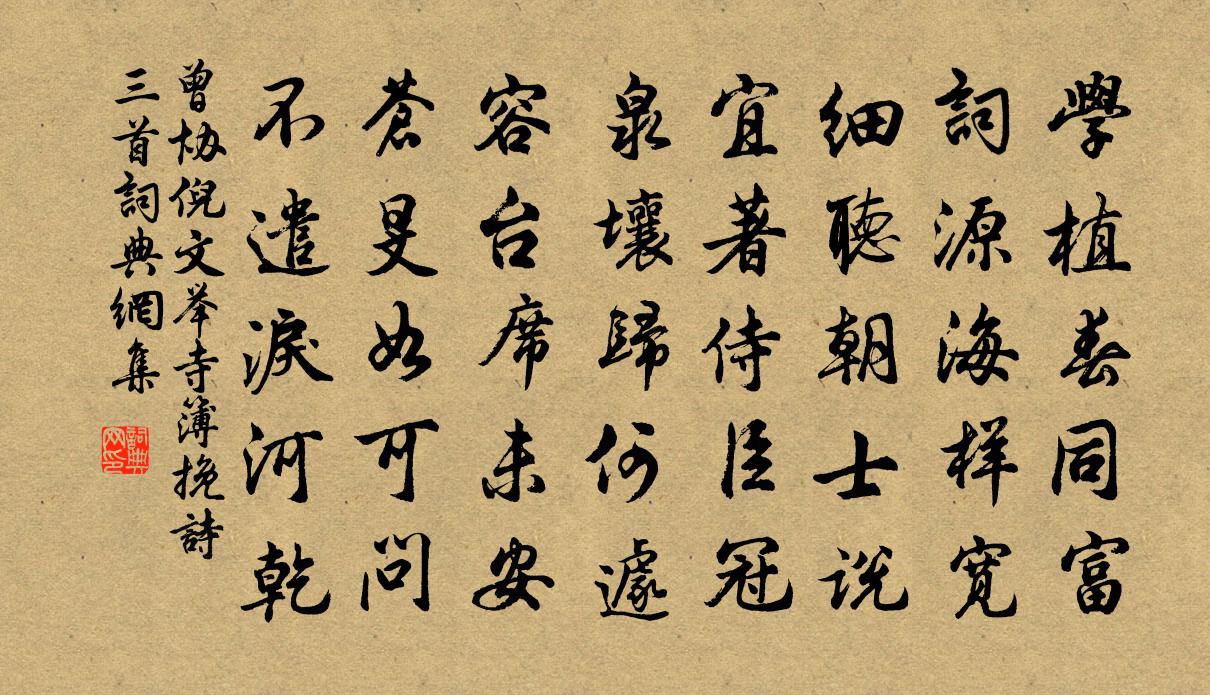 學植春同富
詞源海样寬
细聽朝士説
宜著侍臣冠
泉壤歸何遽
容台席未安
蒼旻如可問
不遣淚河乾
曾协倪文举寺簿挽詩
三首詞典網集
詞典
网印